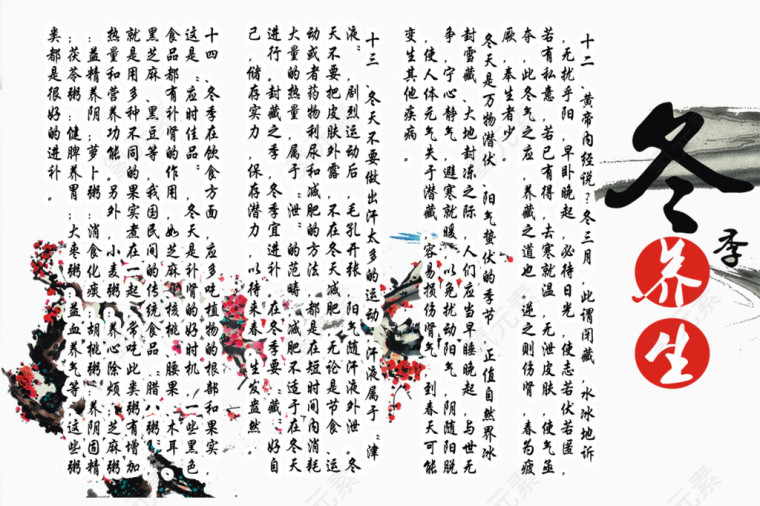 冬季养生
十二、黄帝内经说？冬三月，此谓闭藏，水冰地诉
，无扰乎阳，早卧晚起，必待日光，使志若伏若匿，
若有私意，若已有得，去寒就温，无泄皮肤，使气亟
夺，此冬气之应，养藏之道也。逆之则伤肾，春为疲
厥，奉生者少。
冬天是万物潜伏、阳气蛰伏的季节，正值自然界冰
封雪藏、大地封冻之际，人们应当早睡晚起，与世无
争，宁心静气，避寒就暖，以免扰动阳气，阴随阳脱
，使人体元气失于潜藏，容易损伤肾气，到春天可能
变生其他疾病。
十三、冬天不要做出汗太多的运动，汗液属于“津
液”，剧烈运动后，毛孔开张，阳气随汗液外泄。冬
天不要把皮肤外露，不在冬天减肥，无论是节食、运
动或者药物利尿和减肥的方法，都是在短时间内消耗
大量的热量，属于“泄”的范畴，减肥不适于在冬天
进行。封藏之季，冬季宜进补，在冬季要“藏”好自
己，储存实力，保存潜力，以待来春，生发盎然。
十四、冬季在饮食方面，应多吃植物的根部和果实，
这是“应时佳品”，冬天是补肾的好时机，一些黑色
食品都有补肾的作用，如芝麻、核桃、腰果、木耳、
黑芝麻、黑豆等，我国民间的传统食品“腊八粥”，
就是用多种不同的果实煮在一起，常吃此类粥有增加
热量和营养功能。另外，小麦粥：养心除烦；芝麻粥
：益精养阴；萝卜粥：消食化痰；胡桃粥：养阴固精
；茯苓粥：健脾养胃；大枣粥：益血养气等，这些粥
类都是很好的进补。